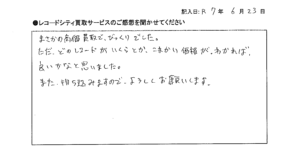 記入日: R 7年 6月 23日
●レコードシティ買取サービスのご感想を聞かせてください
まさかの高価買取で、びっくりでした。
ただ、どのレコードがいくらとか、こまかい価格が、わかれば、
良いかなと思いました。
また、申し込みますので、よろしくお願いします。